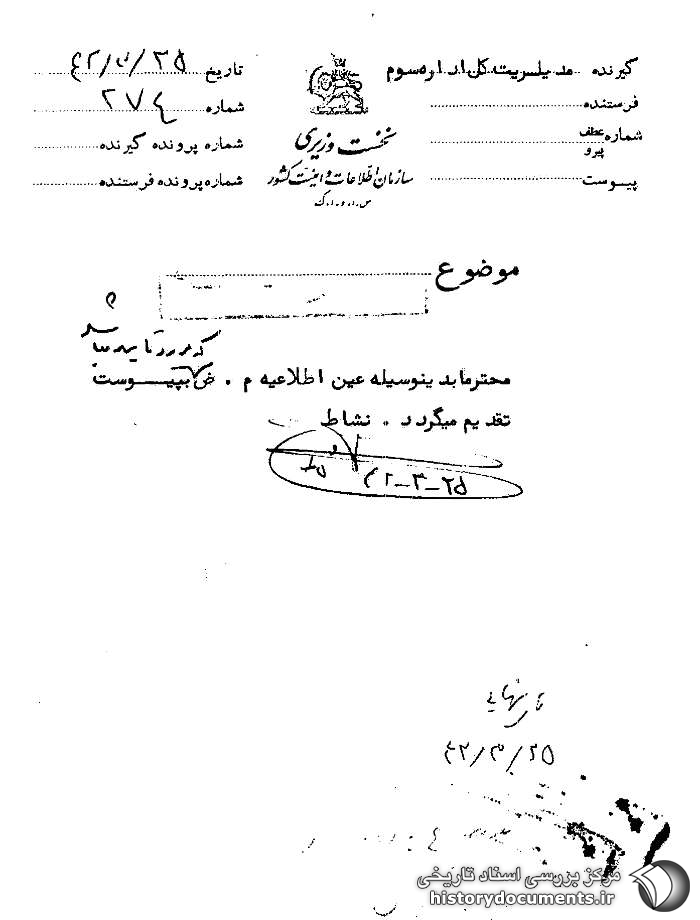 گیرنده مدیریت کل اداره سوم
فرستنده
شماره عطف
پیرو
پیوست
نخست وزیری
سازمان اطلاعات و امنیت کشور
س.ا.و.ا.ک
تاریخ ۴۲/۳/۲۵
شماره ۲۷۴
شماره پرونده گیرنده
شماره پرونده فرستنده
موضوع
که مورد تایید میباشد
محترما بدینوسیله عین اطلاعیه م . ض بپیوست
تقدیم میگردد . نشاط
۴۲-۳-۲۵
۴۲/۳/۲۵
مرکز بررسی اسناد تاریخی
historydocuments.ir